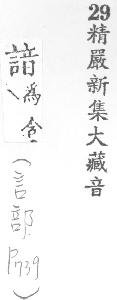 29精嚴新集大藏音
諳為含
(言部.P739)